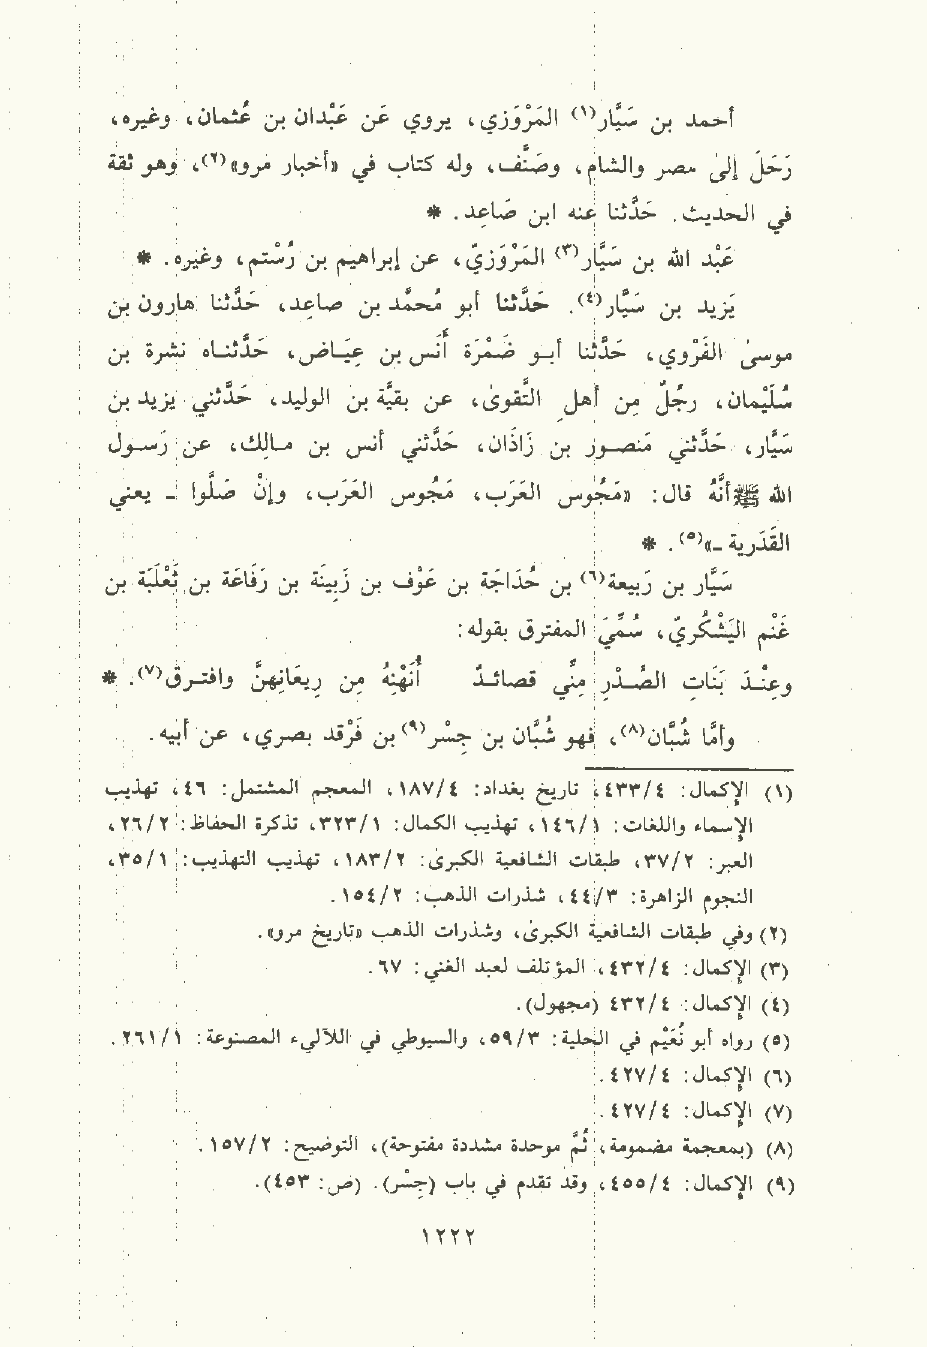 أحمد بن سَيَّار(١) المَرْوَزي، يروي عَن عَبْدان بن عُثمان، وغيره،
رَحَلَ إلىٰ مصر والشام، وصَنَّف، وله كتاب في «أخبار مرو»(٢)، وهو ثقة
في الحديث. حَدَّثنا عنه ابن صَاعِد. *
عَبْد الله بن سَيَّار(٣) المَرْوَزيّ، عن إبراهيم بن رُسْتم، وغيره. *
يَزيد بن سَيَّار(٤). حَدَّثنا أبو مُحمَّد بن صاعِد، حَدَّثنا هارون بن
موسىٰ الفَرْوي، حَدَّثنا أبو ضَمْرَة أَنَس بن عِيَاض، حَدَّثناه نشرة بن
سُلَيْمان، رجُلٌ مِن أهلِ التَّقوىٰ، عن بقيَّة بن الوليد، حَدَّثني يزيد بن
سَيَّار، حَدَّثني مَنصور بن زَاذَان، حَدَّثني أنس بن مالِك، عن رَسول
الله ﷺ أنَّهُ قال: «مَجُوس العَرَب، مَجُوس العَرَب، وإنْ صَلَّوا ـ يعني
القَدَرية ـ»(٥). *
سَيَّار بن رَبيعة(٦) بن حُدَاجَة بن عَوْف بن زَبِينَة بن زَفَاعَة بن ثَعْلَبَة بن
غَنْم اليَشْكُريّ، سُمِّيَ المفترق بقوله:
وعِنْدَ بَنَاتِ الصُدْرِ مِنِّي قصائدٌ أُنَهْنِهُ مِن رِيعَانِهنَّ وافترق(٧). *
وأمَّا شُبَّان(٨)، فهو شُبَّان بن جِسْر(٩) بن فَرْقد بصري، عن أبيه.
(١) الإكمال: ٤/٤٣٣، تاريخ بغداد: ٤/١٨٧، المعجم المشتمل: ٤٦، تهذيب
الإسماء واللغات: ١/١٤٦، تهذيب الكمال: ١/٣٢٣، تذكرة الحفاظ: ٢/٢٦،
العبر: ٢/٣٧، طبقات الشافعية الكبرىٰ: ٢/١٨٣، تهذيب التهذيب: ١/٣٥،
النجوم الزاهرة: ٣/٤٤، شذرات الذهب: ٢/١٥٤.
(٢) وفي طبقات الشافعية الكبرىٰ، وشذرات الذهب «تاريخ مرو».
(٣) الإكمال: ٤/٤٣٢، المؤتلف لعبد الغني: ٦٧.
(٤) الإكمال: ٤/٤٣٢ (مجهول).
(٥) رواه أبو نُعَيْم في الحلية: ٣/٥٩، والسيوطي في اللآلىء المصنوعة: ١/٢٦١.
(٦) الإكمال: ٤/٤٢٧.
(٧) الإكمال: ٤/٤٢٧.
(٨) (بمعجمة مضمومة، ثُمَّ موحدة مشددة مفتوحة)، التوضيح: ٢/١٥٧.
(٩) الإكمال: ٤/٤٥٥، وقد تقدم في باب (جِسْر). (ص: ٤٥٣).
١٢٢٢